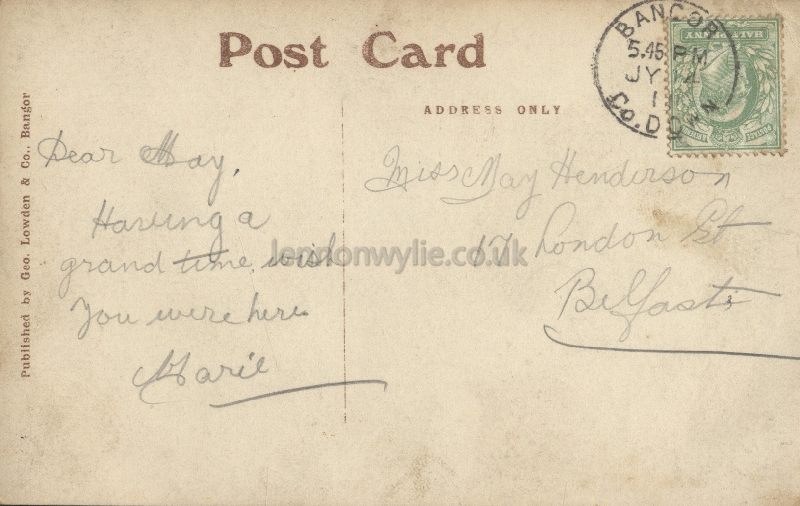 Post Card
ADDRESS ONLY
Published by Geo. Lowden & Co., Bangor
BANGOR
5.45 PM
JY 14
1
Co. DOWN
HALFPENNY
POSTAGE
Dear May,
Having a
grand time, wish
You were here
Marie
Miss May Henderson
17 London St
Belfast
lendonwylie.co.uk